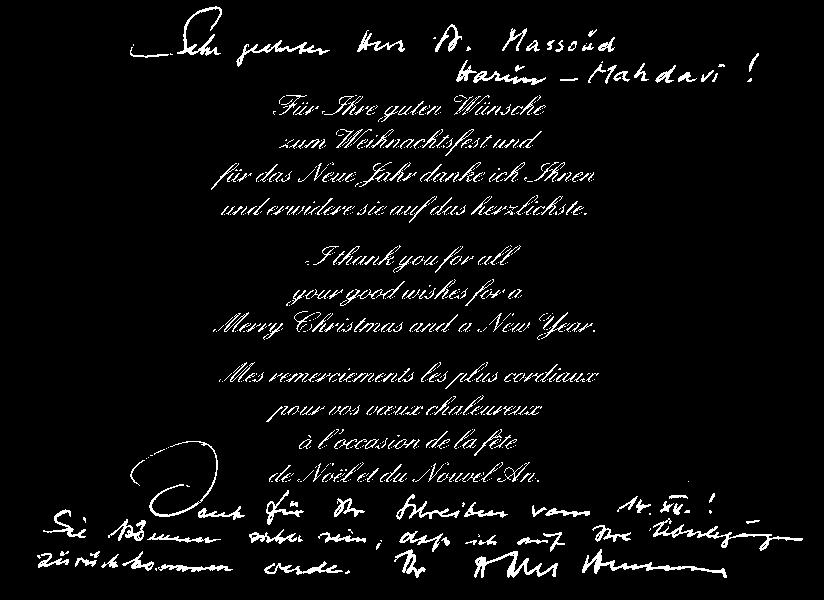 Sehr geehrter Herr Dr. Massoud
Harun – Mahdavi!
Für Ihre guten Wünsche
zum Weihnachtsfest und
für das Neue Jahr danke ich Ihnen
und erwidere sie auf das herzlichste.
I thank you for all
your good wishes for a
Merry Christmas and a New Year.
Mes remerciements les plus cordiaux
pour vos vœux chaleureux
à l'occasion de la fête
de Noël et du Nouvel An.
Dank für Ihr Schreiben vom 14. XII.!
Sie können sicher sein, daß ich auf Ihre Überlegungen
zurückkommen werde. Ihr